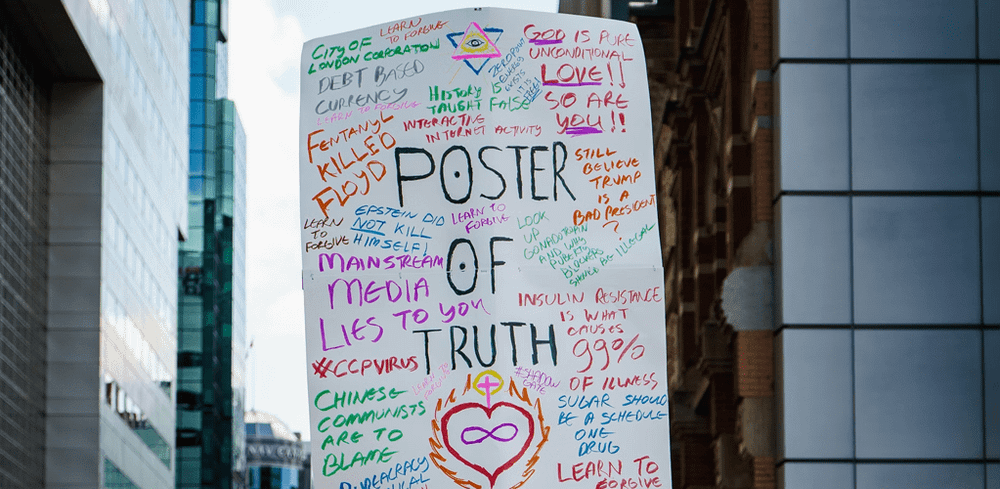 LEARN
TO FORGIVE
CITY OF
LONDON CORPORATION
DEBT BASED
CURRENCY
LEARN TO FORGIVE
FENTANYL
KILLED
FLOYD
ZEROPOINT
ENERGY
EXISTS
IT IS
FREE!
HISTORY IS
TAUGHT FALSE
INTERACTIVE
INTERNET ACTIVITY
GOD IS PURE
UNCONDITIONAL
LOVE!!
SO ARE
YOU!!
POSTER
OF
TRUTH
STILL
BELIEVE
TRUMP
IS A
BAD PRESIDENT
?
LEARN
TO
FORGIVE
EPSTEIN DID
NOT KILL
HIMSELF!
LEARN TO
FORGIVE
LOOK
UP
AND WHY
PUBERTY
BLOCKERS
SHOULD BE ILLEGAL
MAINSTREAM
MEDIA
LIES TO YOU
INSULIN RESISTANCE
IS WHAT
CAUSES
99%
OF ILLNESS
#CCPVIRUS
LEARN TO
#SHADOW
GATE
CHINESE
COMMUNISTS
ARE TO
BLAME
SUGAR SHOULD
BE A SCHEDULE
ONE
DRUG
LEARN TO
FORGIVE